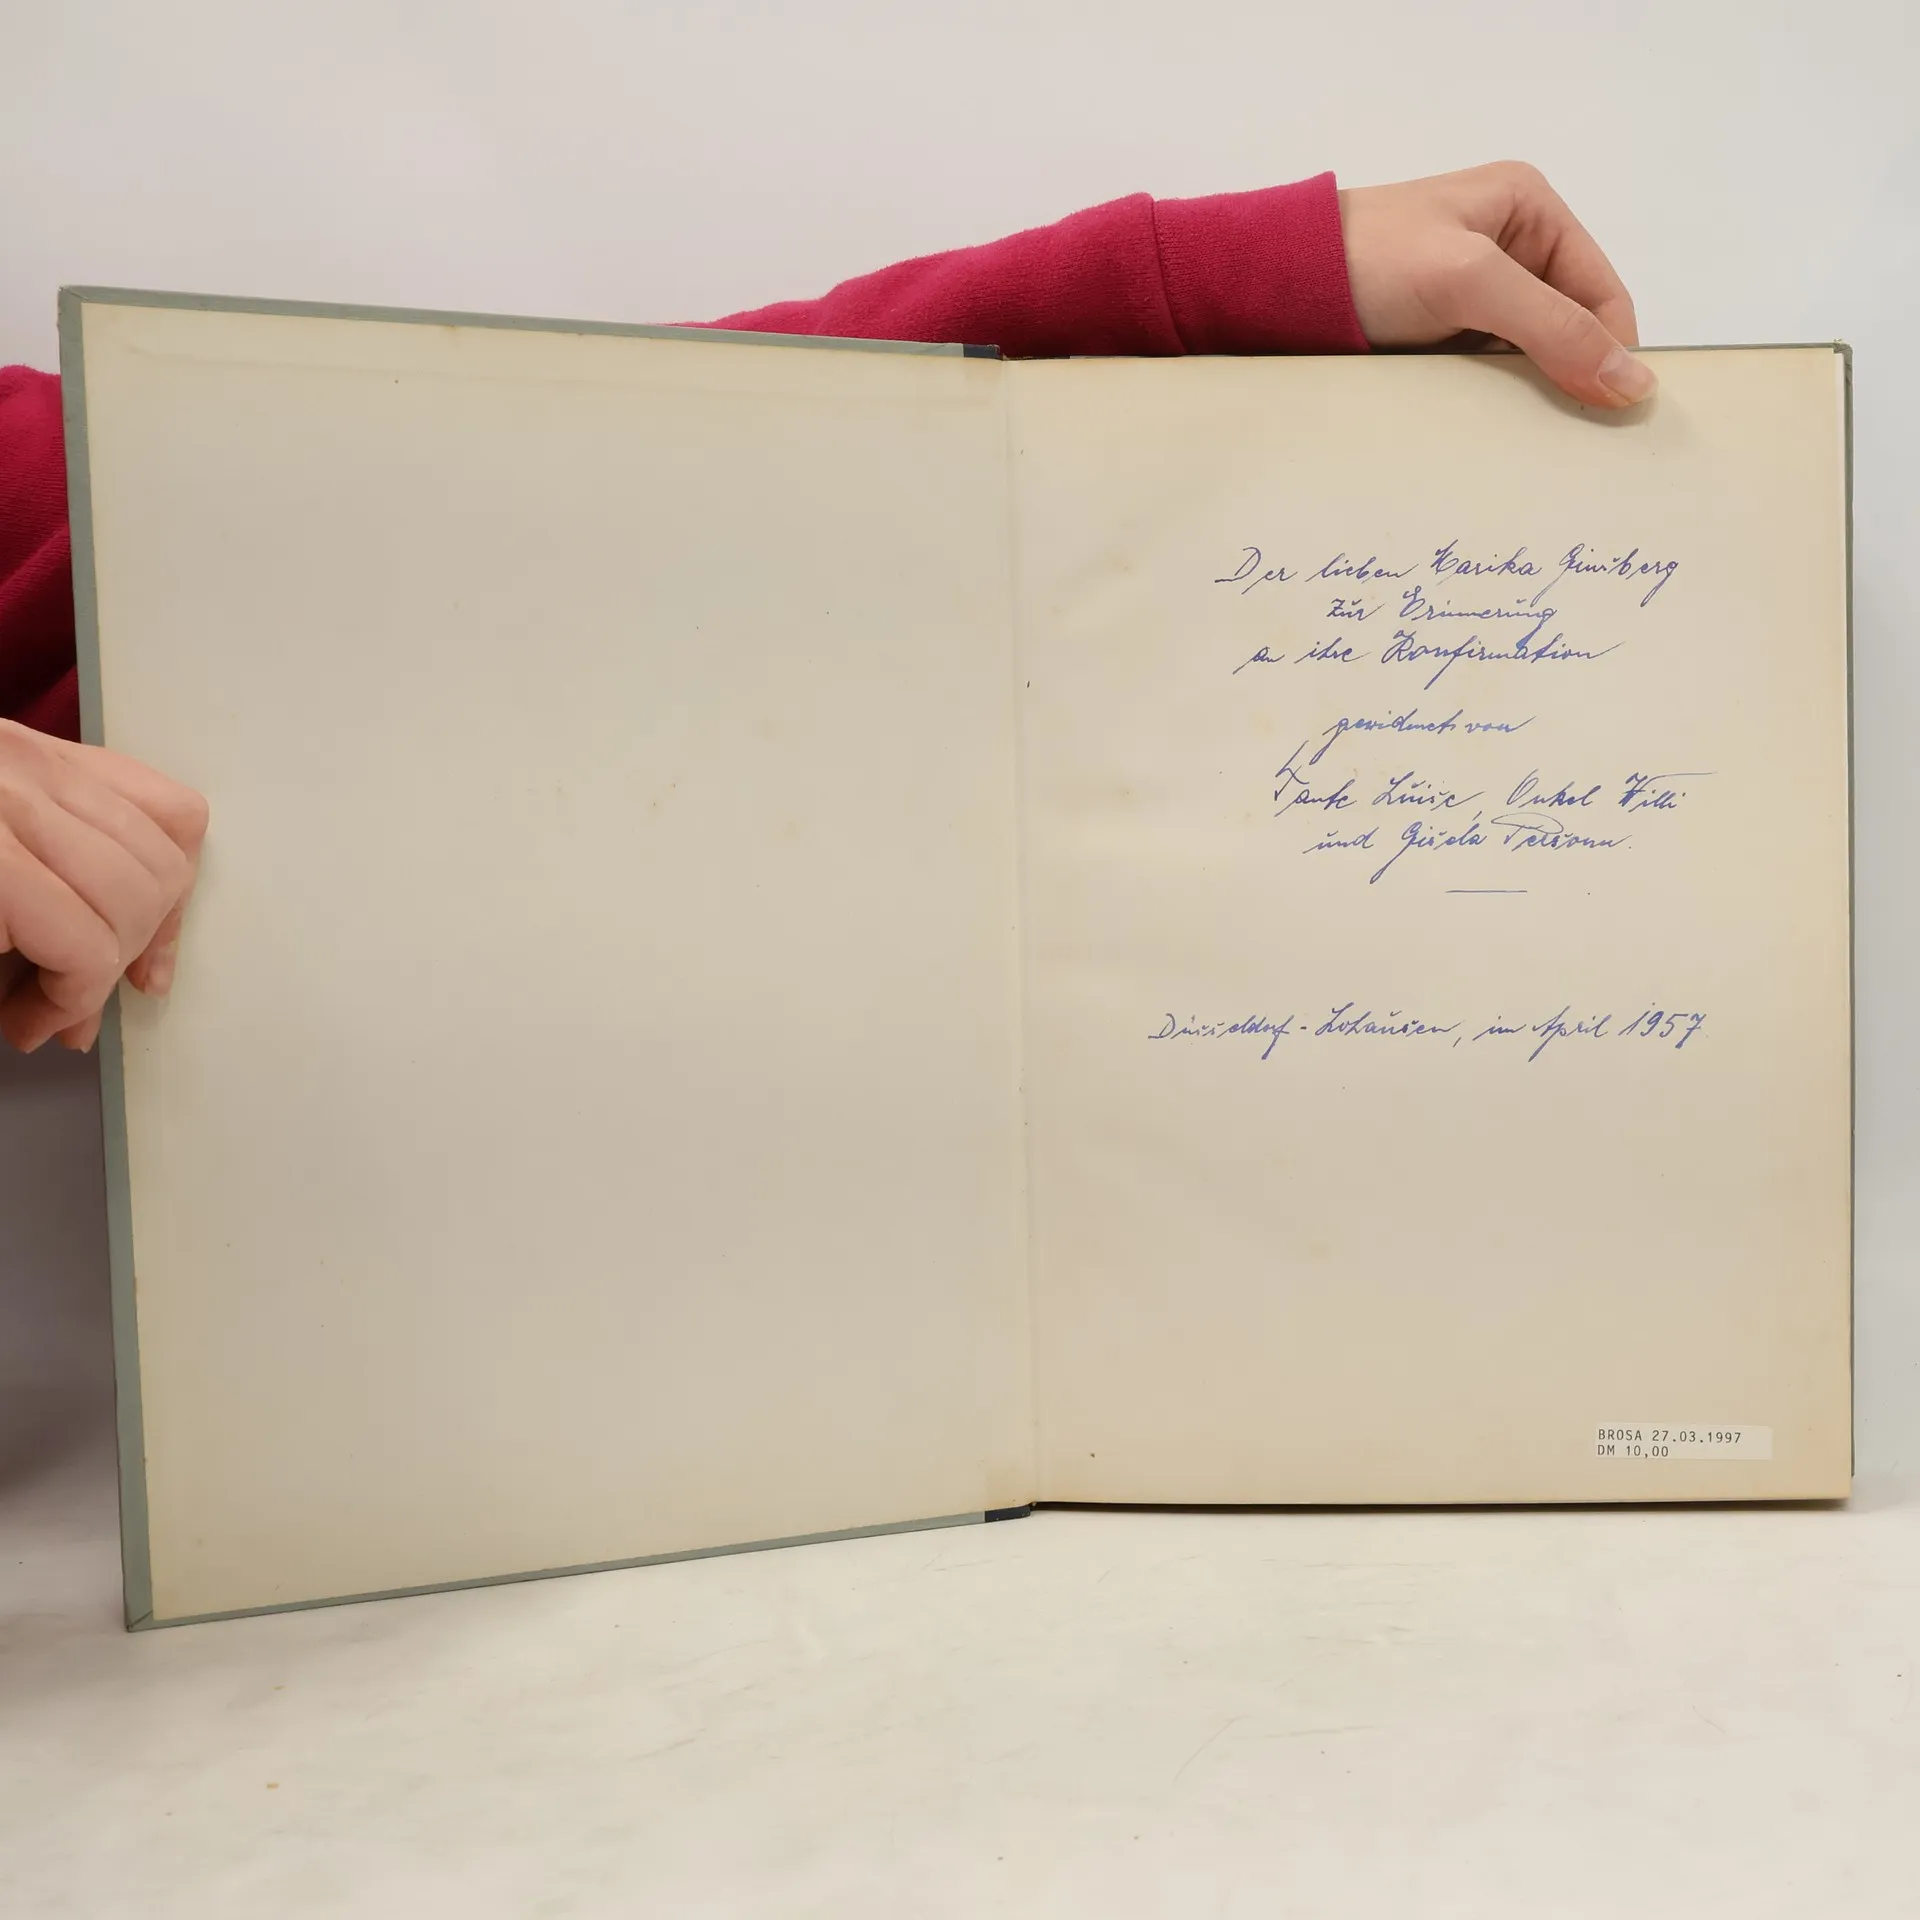 Der lieben Marika Ginsberg
zur Erinnerung
an ihre Konfirmation
gewidmet von
Tante Luise, Onkel Willi
und Gisela
Düsseldorf-Lohausen, im April 1957
BROSA 27.03.1997
DM 10,00